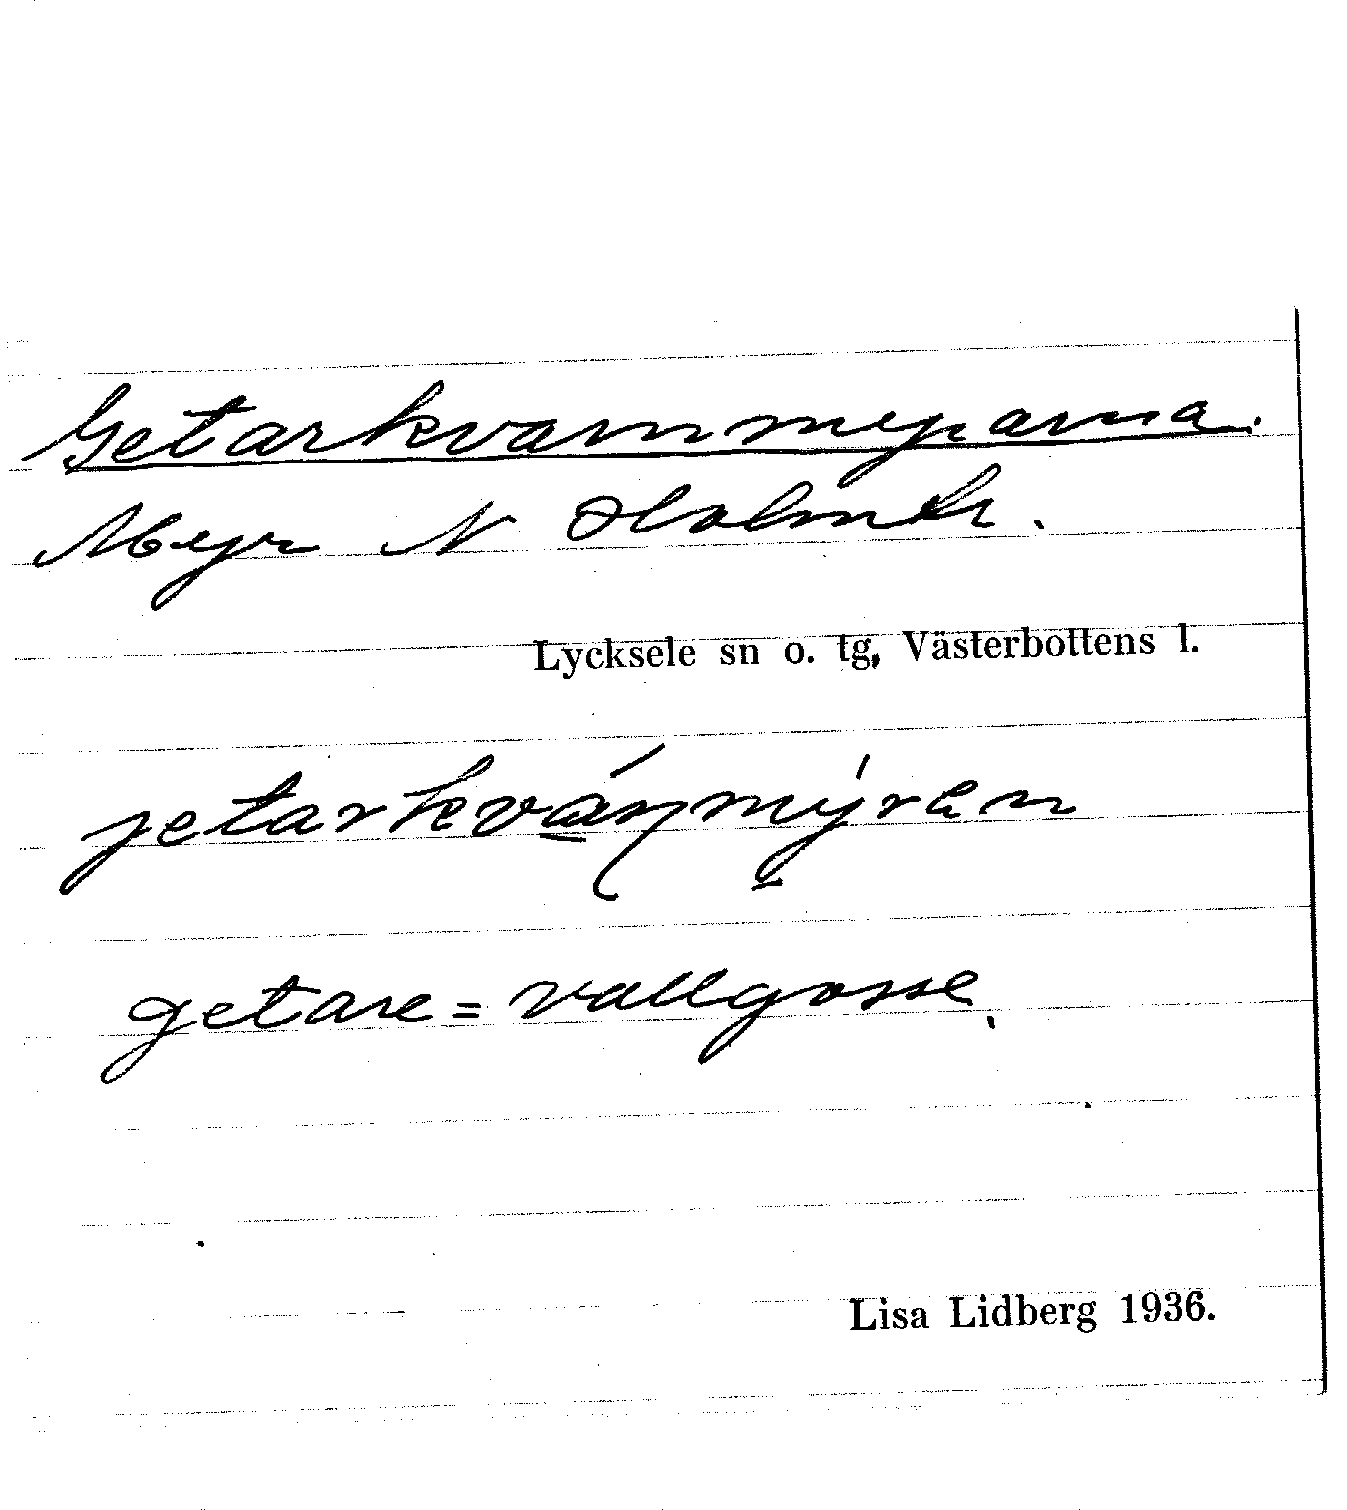 Getarkvarnmyrarna.
Myr N Holmtr.
Lycksele sn o. tg, Västerbottens l.
jetarkváɳmýran
getare = vallgosse.
Lisa Lidberg 1936.